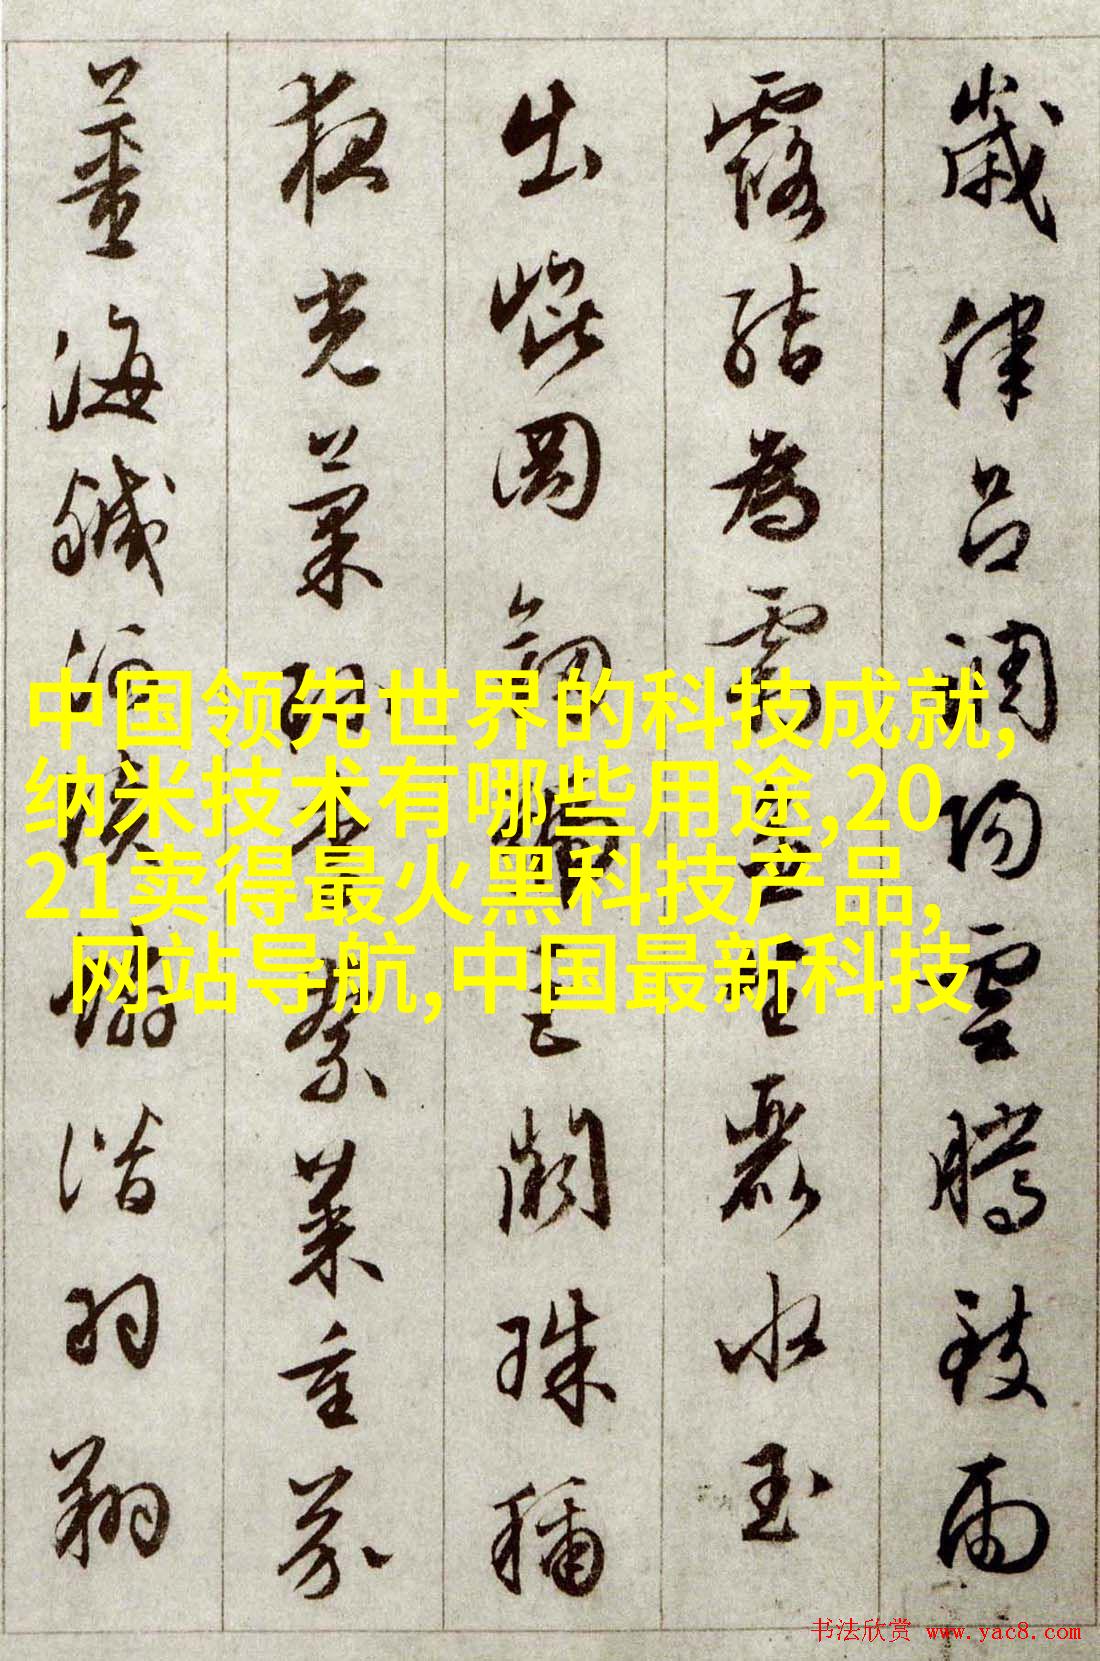 歲律呂調陽雲騰致雨
露結為霜金生麗水玉
出崐岡劍號巨闕珠稱
夜光菓珍李柰菜重芥
薑海鹹河淡鱗潛羽翔
中国领先世界的科技成就,
纳米技术有哪些用途,20
21卖得最火黑科技产品,
网站导航,中国最新科技
书法欣赏 www.yac8.com